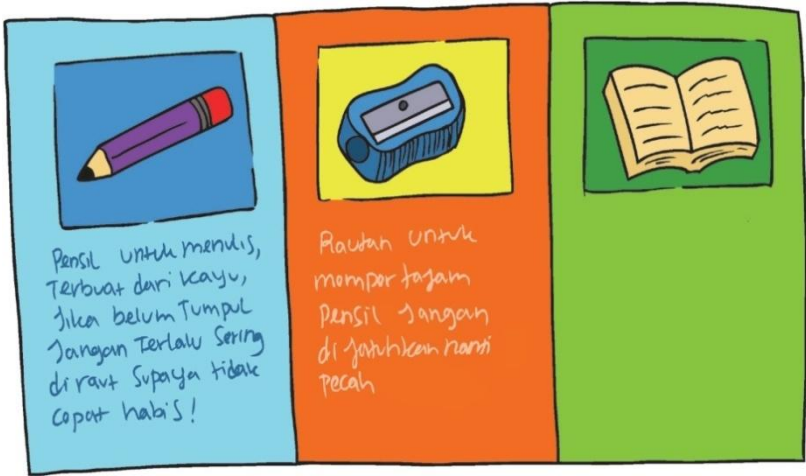 Pensil untuk menulis,
Terbuat dari kayu,
Jika belum Tumpul
Jangan Terlalu Sering
diraut Supaya tidak
cepat habis!
Rautan untuk
mempertajam
Pensil Jangan
di jatuhkan nanti
pecah